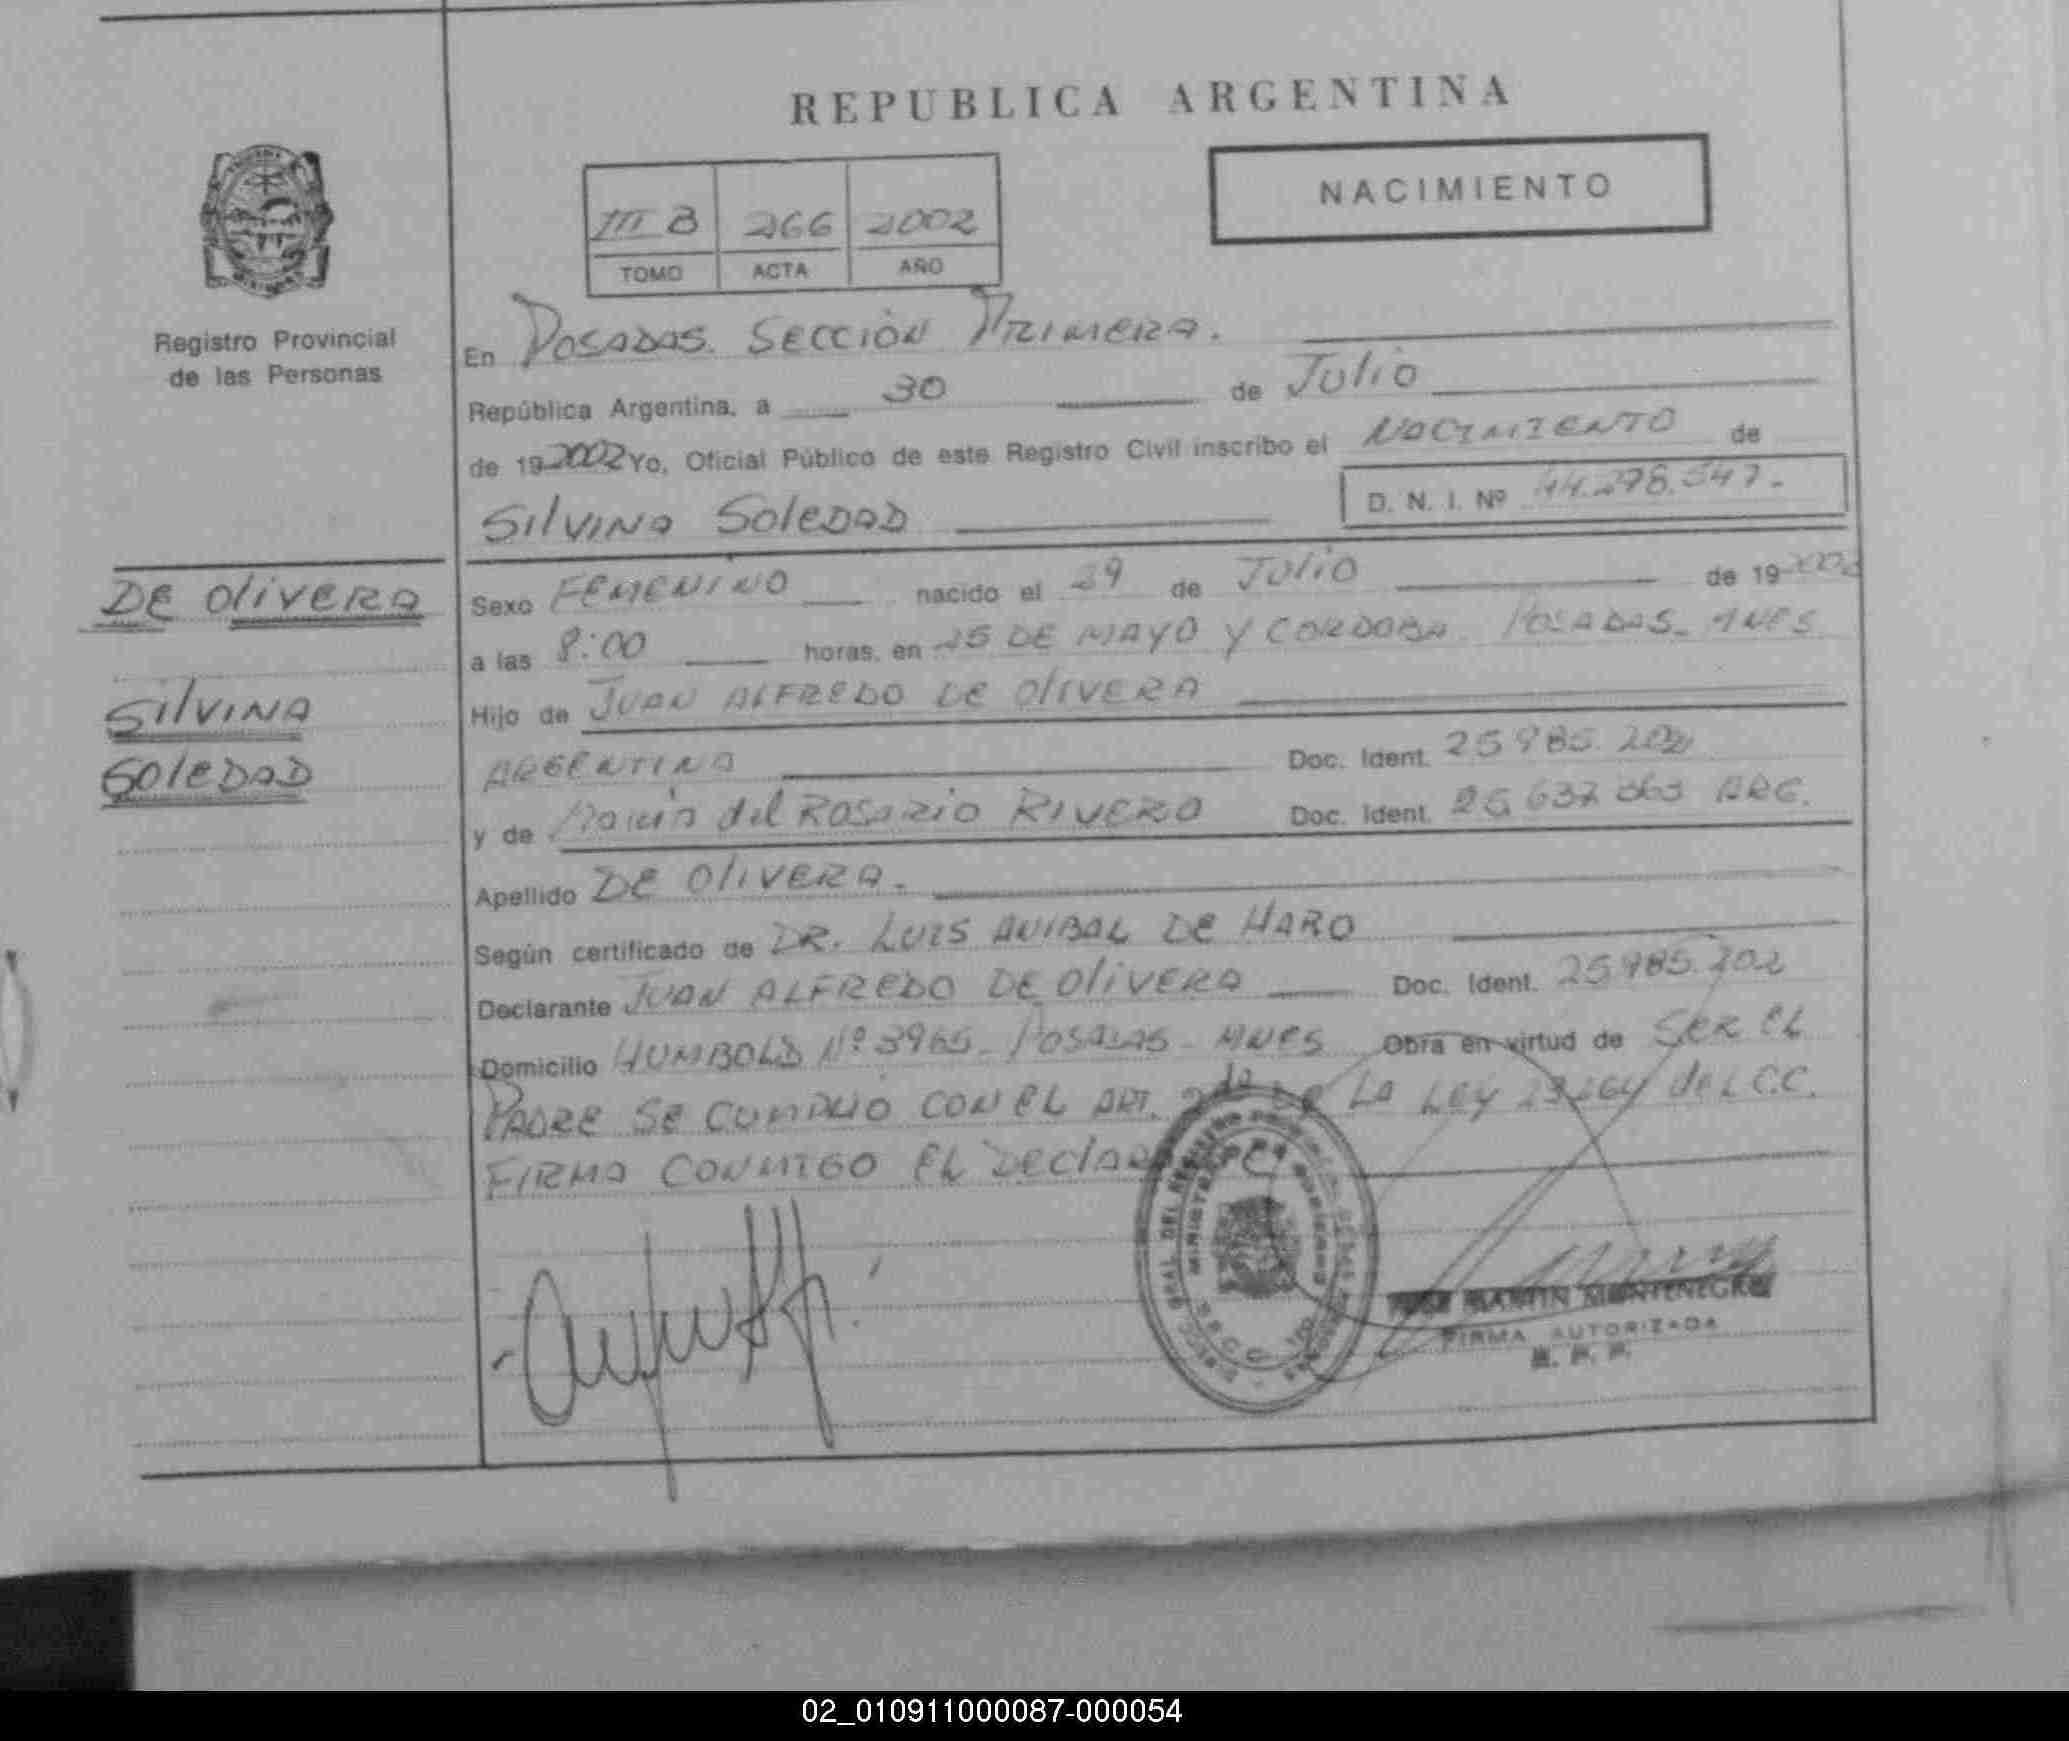 REPUBLICA ARGENTINA
NACIMIENTO
III B 266 2002
TOMO ACTA AÑO
Registro Provincial
de las Personas
En POSADAS. SECCIÓN PRIMERA.
República Argentina, a 30 de Julio
de 19 2002 Yo, Oficial Público de este Registro Civil inscribo el NACIMIENTO de
SILVINA SOLEDAD
D. N. I. Nº 44.278.547.-
DE OLIVERA
SILVINA
SOLEDAD
Sexo FEMENINO nacido el 29 de Julio de 19 2002
a las 8:00 horas, en 25 DE MAYO Y CORDOBA POSADAS- MNES
Hijo de JUAN ALFREDO DE OLIVERA
ARGENTINO Doc. Ident. 25.985.202
y de María del ROSARIO RIVERO Doc. Ident. 26.637.363 ARG.
Apellido DE OLIVERA.-
Según certificado de DR. LUIS ANIBAL DE HARO
Declarante JUAN ALFREDO DE OLIVERA Doc. Ident. 25985.202
Domicilio HUMBOLD Nº 3965- POSADAS - MNES Obra en virtud de SER EL
PADRE SE CUMPLIO CON EL ART. DE LA LEY 23264 del C.C.
FIRMA CONMIGO EL
JOSE MARTIN MONTENEGRO
FIRMA AUTORIZADA
R. P. P.
02_010911000087-000054